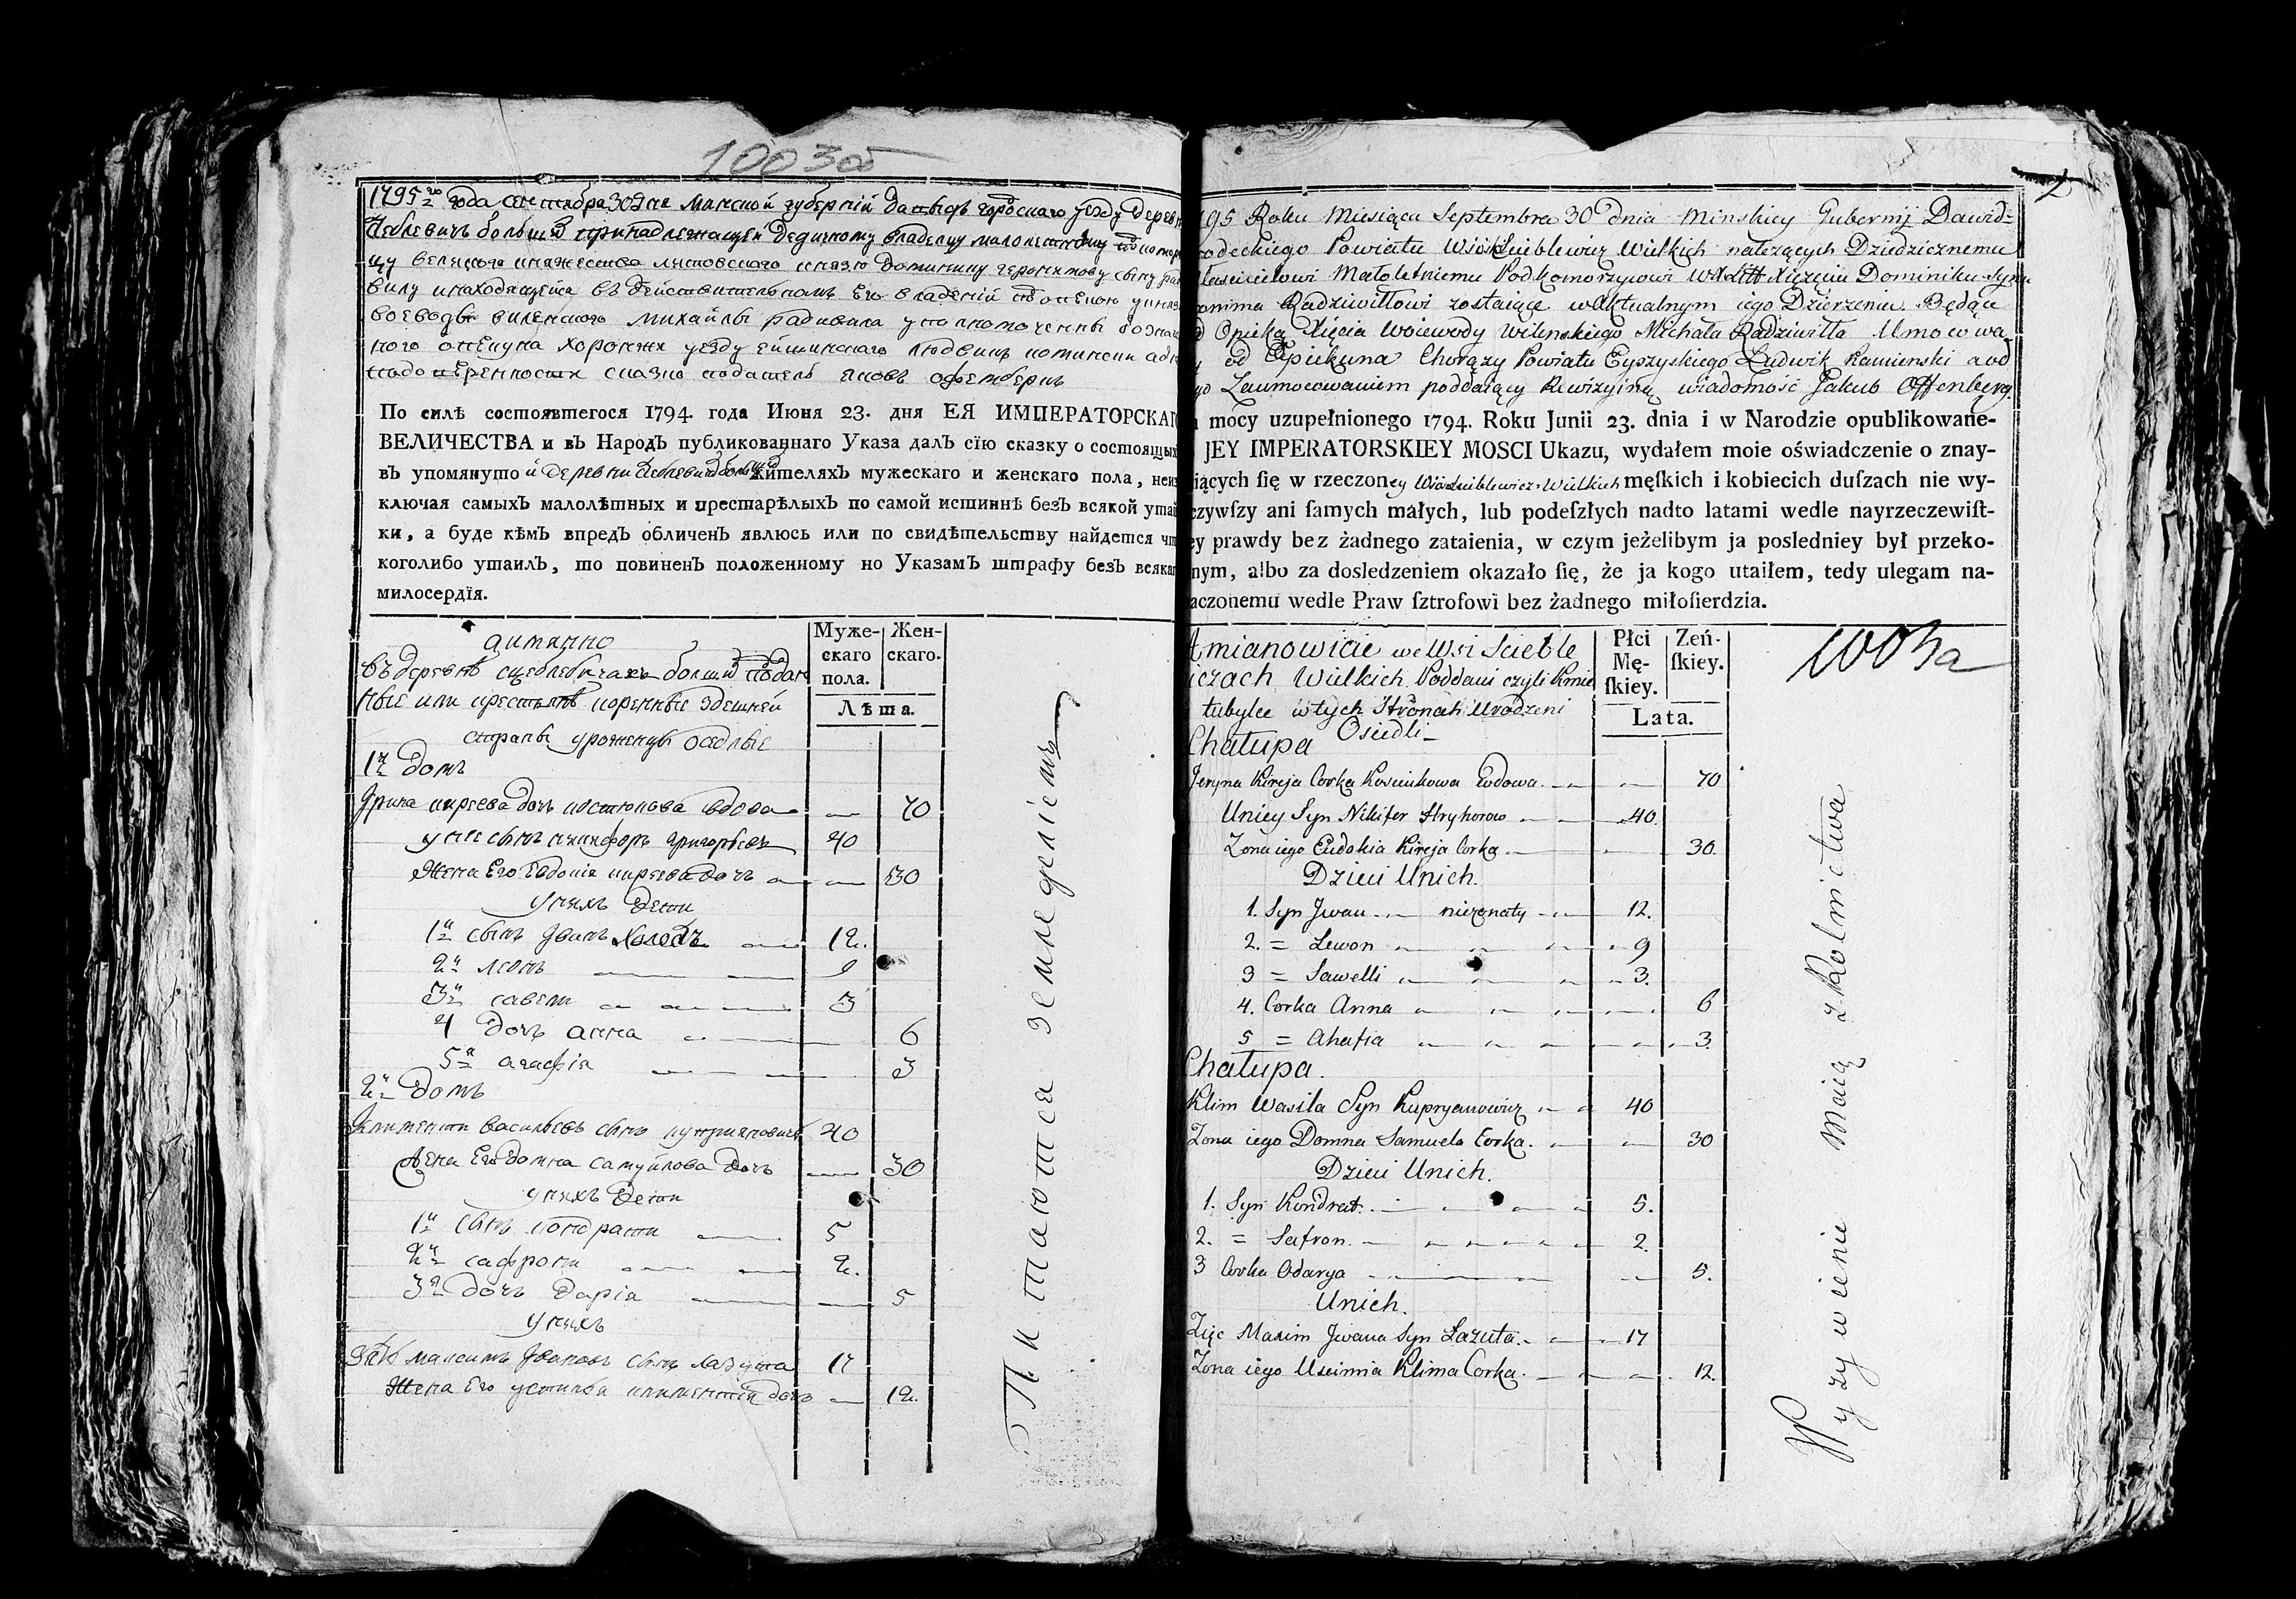 1003об
1795го года сентября 30 дня Минской губернии Давыдъ городскаго уезду деревни
принадлежащей дедичному владелцу малолетному
великого княжества литовского князю Доминику Геронимову сыну
вилу и находящейся въ действительномъ его владений
воеводы виленского Михайлы радивила уполномоченны
ного опекуна хоронжи уезду ейшинского Людвикъ камински
сказку податель Яковъ офемберкъ
По силѣ состоявшегося 1794. года Июня 23. дня ЕЯ ИМПЕРАТОРСКАГ
ВЕЛИЧЕСТВА и въ НародЪ публикованнаго Указа далЪ сїю сказку о состоящых
въ упомянуто й деревни жителяхЪ мужескаго и женскаго пола, неиз
ключая самыхЪ малолѣтных и престарѣлыхЪ по самой истиннѣ безЪ всякой утай
ки, а буде кѣмЪ впредЪ обличенЪ явлюсь или по свидѣтельству найдется чт
коголибо утаилЪ, то повиненЪ положенному по УказамЪ штрафу безЪ всякаг
милосердїя.
Муже- Жен-
скаго скаго.
пола.
Лѣта.
а имянно
въ деревнѣ сщеблевичахъ болшихъ подан
ные или крестьянѣ коренные здешней
страны уроженцы оседлые
1й домъ
Ірина киреева дочь костюкова вдова 70
у нее сынъ никифоръ григорьевъ 40
Жена Его Евдокія киреева дочь 30
у нихъ дети
1й сынъ Іванъ холостъ 12.
2й леонъ 9
3й савели 3
4 дочь анна 6
5я агафія 3
2й домъ
Климентий васильевъ сынъ куприяновичъ 40
Жена Его домна самуйлова дочь 30
у нихъ дети
1й сынъ кондрати 5
2й сафронъ 2.
3я дочь дарія 5
у нихъ
Зять максимъ Івановъ сынъ лазута 17
Жена Его климентия дочь 12.
Питаются земледеліемъ
2
195 Roku Miesiąca Septembra 30 dnia Minskiey Gubernij Dawid=
rodeckiego Powiatu Wsi Scieblewicz Wielkich należących Dziedzicznemu
Własicielowi Małoletniemu Podkomorzyowi W X Litt Xięciu Dominiku Synu
onima Radziwiłłowi zostaiące w Aktualnym iego Dzierzeniu Będąc
d Opieką Xięcia Woiewody Wilenskiego Michała Radziwiłła Umocowa
y od Opiekuna Chorąży Powiatu Eyszyskiego Ludwik Kamienski a od
go Zaumocowaniem poddaiący Rewizyiną wiadomość Jakub Offenberg.
mocy uzupełnionego 1794. Roku Junii 23. dnia i w Narodzie opublikowane-
JEY IMPERATORSKIEY MOSCI Ukazu, wydałem moie oświadczenie o znay-
iących ſię w rzeczoney Wsi Scieblewicz Wielkich męſkich i kobiecich duſzach nie wy-
czywſzy ani ſamych małych, lub podeſzłych nadto latami wedle nayrzeczewiſt-
ey prawdy bez żadnego zataienia, w czym jeżelibym ja posledniey był przeko-
nym, albo za dosledzeniem okazało ſię, że ja kogo utaiłem, tedy ulegam na-
aczonemu wedle Praw ſztrofowi bez żadnego miłoſierdzia.
Płci Zeń-
Mę- ſkiey.
ſkiey.
Lata.
1003a
Amianowicie we Wsi Scieble
iczach Wielkich Poddani czyli Kmie
tubylce w tych Stronach Urodzeni
Osiedli
Chałupa
Jeryna Kireja Corka Kosciukowa Wdowa 70
Uniey Syn Nikifer Hryhorow 40.
Zona iego Eudokia Kireja Corka 30.
Dzieci Unich.
1. Syn Jwan nieżonaty 12.
2. = Lewon 9
3 = Sawelli 3.
4. Corka Anna 6
5 = Ahafia 3.
Chałupa.
Klim Wasila Syn Kupryanowicz 40
Zona iego Domna Samuela Corka. 30
Dzieci Unich.
1. Syn Kondrat. 5.
2. = Safron. 2.
3 Corka Odarya 5.
Unich.
Zięc Maxim Jwana Syn Łazuta. 17
Zona iego Uscimia Klima Corka. 12.
Wyzywienie Maią z Rolnictwa